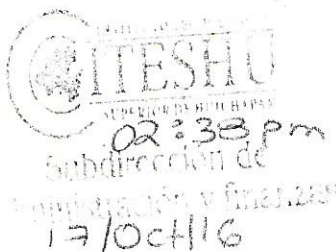 ITESHU
SUPERIOR DE HUICHAPAN
02:38 pm
Subdirección de
administración y finanzas
17/Oct/16